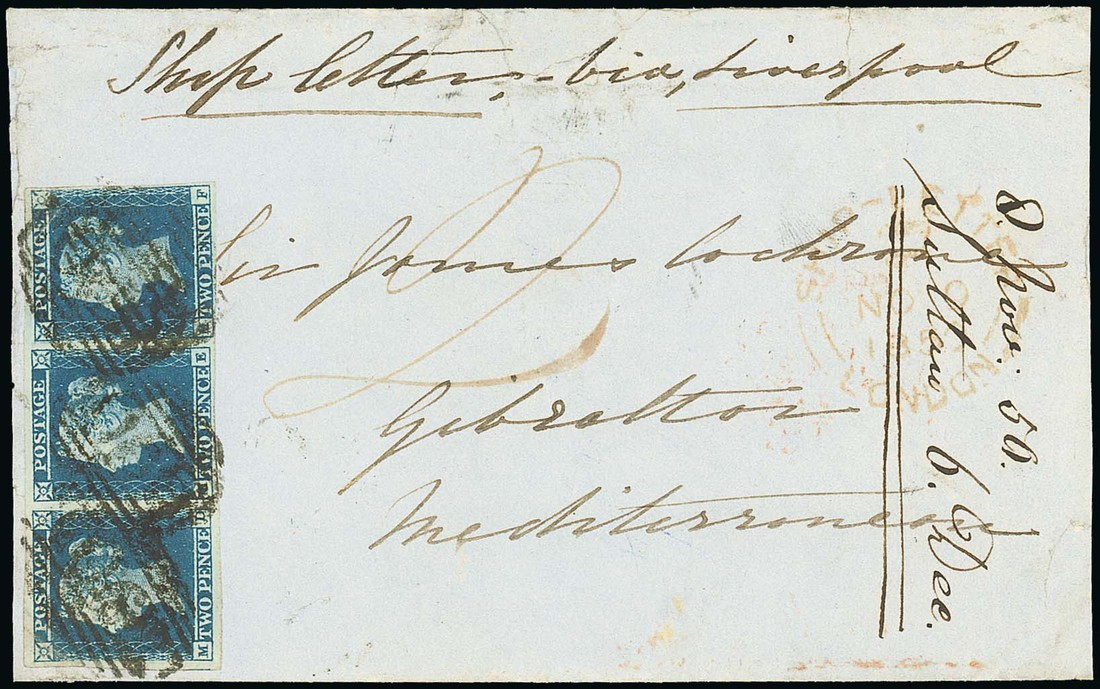 Ship letter, - via, Liverpool
Sir James Cochrane
Gibraltar
Mediterranean
8 Nov. 50.
Sultan 6. Dec.
2
POSTAGE
TWO PENCE
F
POSTAGE
TWO PENCE
E
POSTAGE
TWO PENCE
D
M
PAID
LONDON